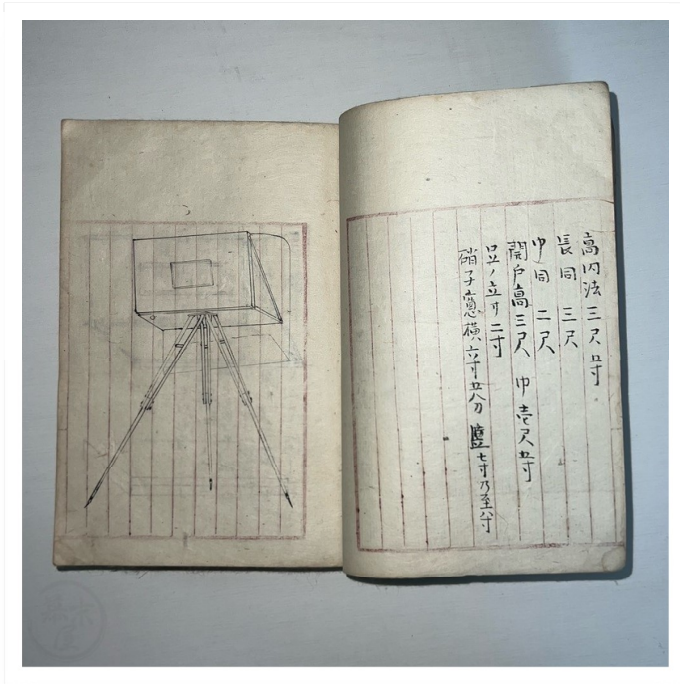 高内法 三尺五寸
長同 三尺
巾同 二尺
開戸高三尺 巾壱尺五寸
足ノ立寸 二寸
硝子窓横六寸五分 竪七寸乃至八寸